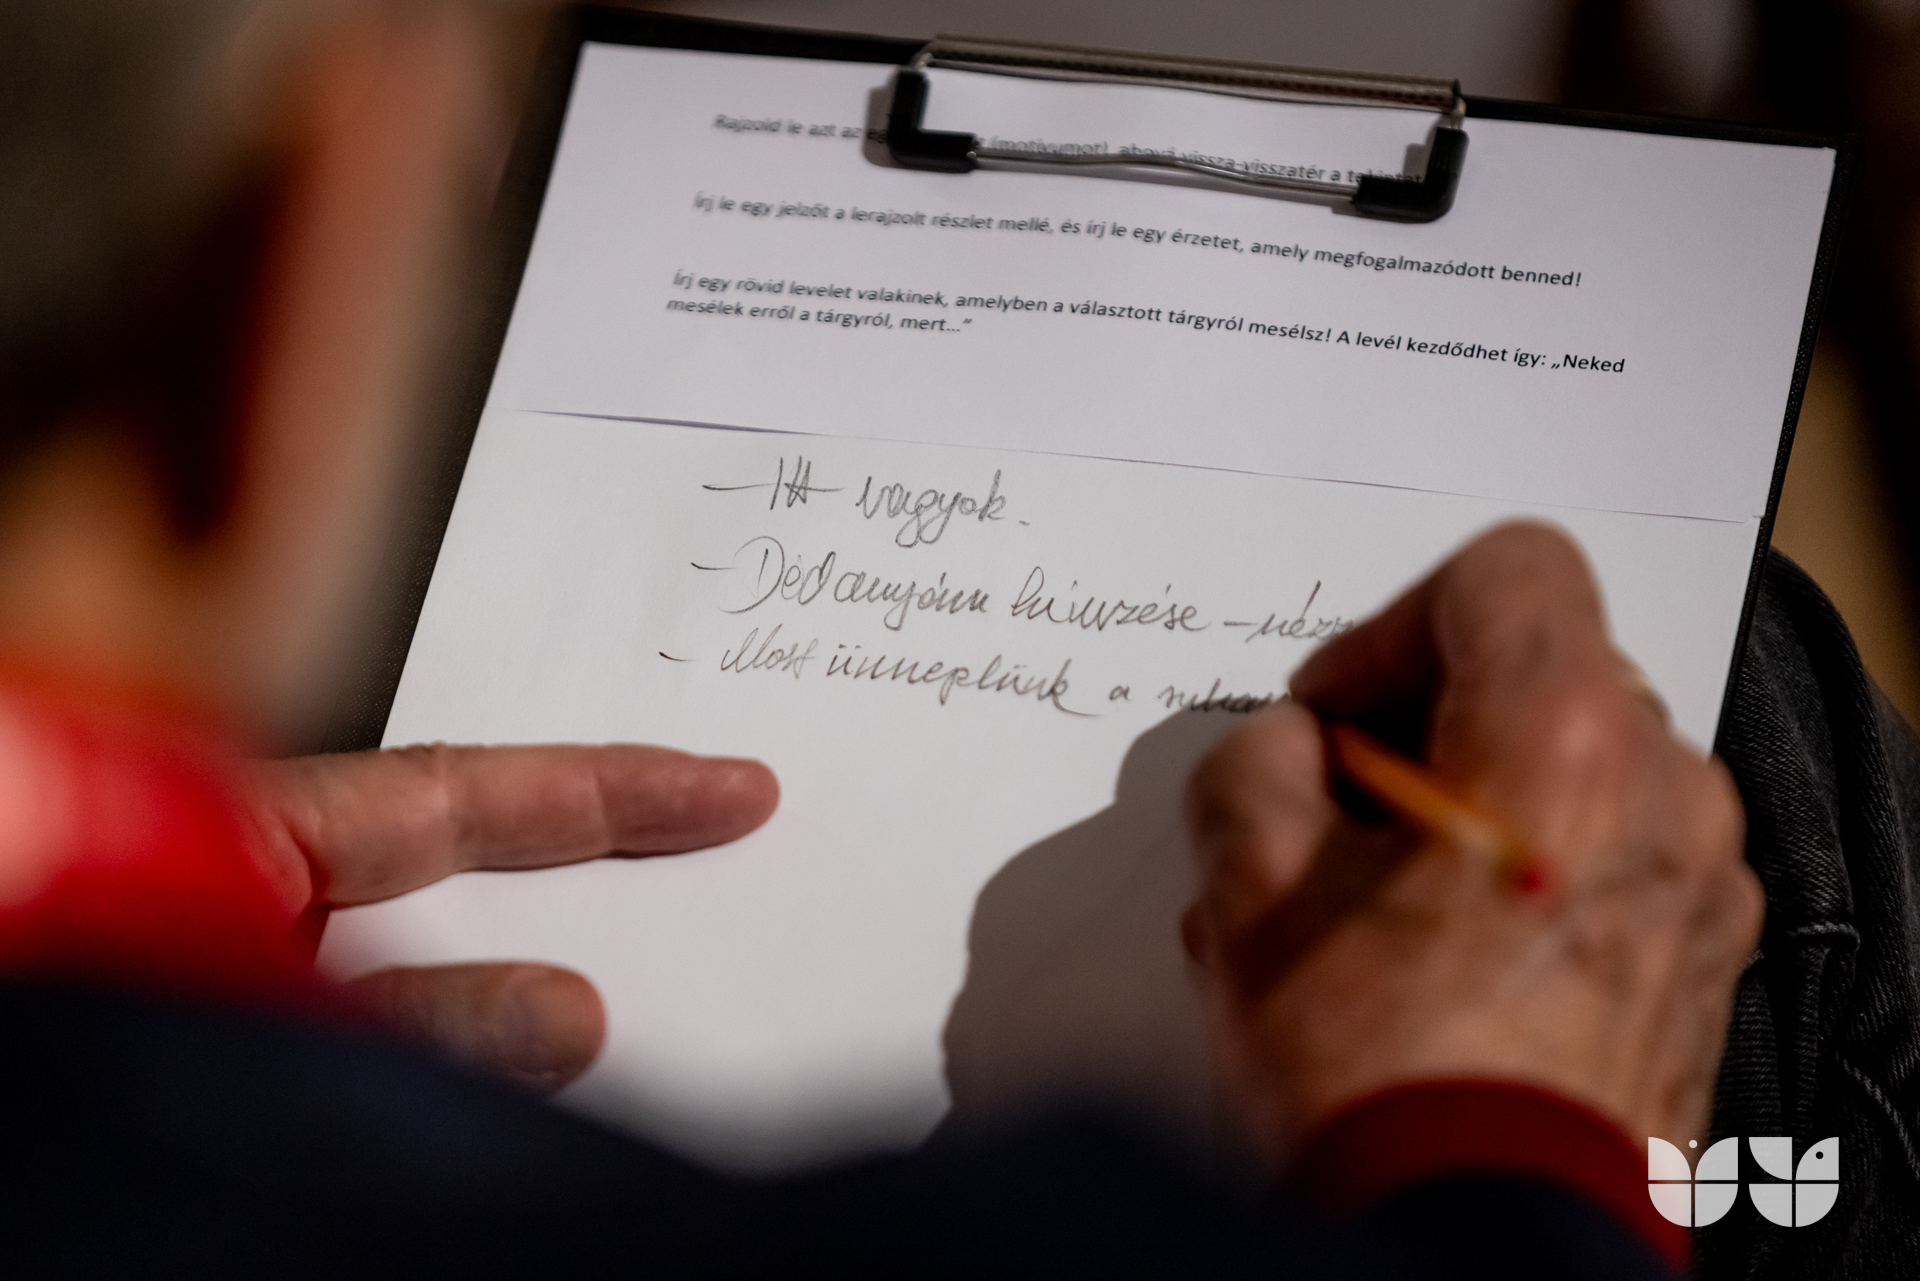 Rajzold le azt az (motívumot), ahová vissza-visszatér a
Írj le egy jelzőt a lerajzolt részlet mellé, és írj le egy érzetet, amely megfogalmazódott benned!
Írj egy rövid levelet valakinek, amelyben a választott tárgyról mesélsz! A levél kezdődhet így: „Neked
mesélek erről a tárgyról, mert...”
– Itt vagyok.
– Dédanyám hímzése –
– Most ünneplünk a